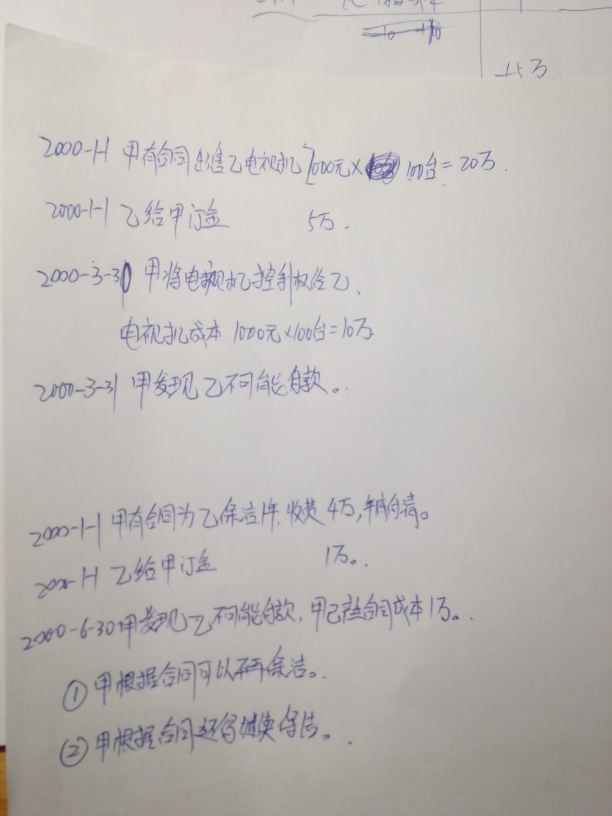 +5万
2000-1-1 甲有合同出售乙电视机 2000元× 100台=20万.
2000-1-1 乙给甲订金 5万.
2000-3-30 甲将电视机控制权给乙.
电视机成本 1000元×100台=10万
2000-3-31 甲发现乙不可能付款。
2000-1-1 甲有合同为乙保洁1年.收费4万,年付清。
2000-1-1 乙给甲订金 1万。
2000-6-30 甲发现乙不可能付款,甲已发生合同成本1万。
① 甲根据合同可以不再保洁。
② 甲根据合同还得继续保洁。